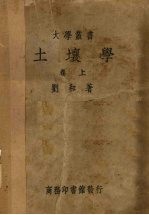 大學叢書
土壤學
卷上
劉和著
商務印書館發行